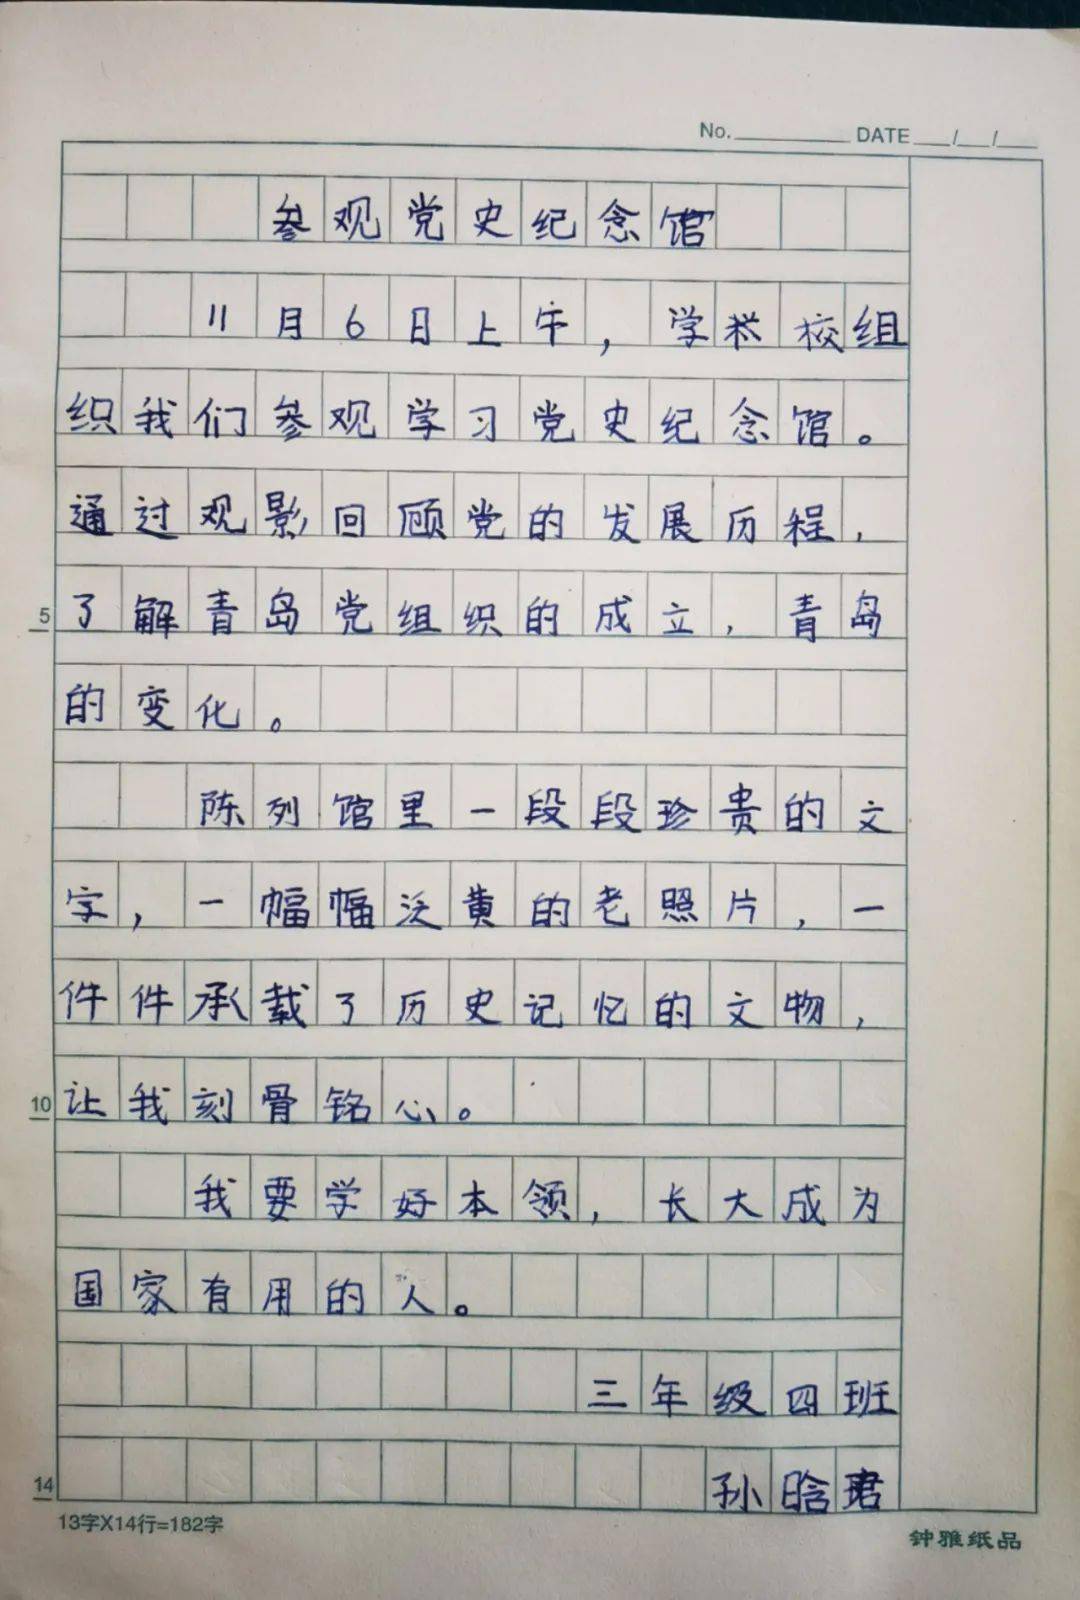 No.________ DATE __/__/__
参观党史纪念馆
11月6日上午，学校组
织我们参观学习党史纪念馆。
通过观影回顾党的发展历程，
5 了解青岛党组织的成立，青岛
的变化。
陈列馆里一段段珍贵的文
字，一幅幅泛黄的老照片，一
件件承载了历史记忆的文物，
10 让我刻骨铭心。
我要学好本领，长大成为
国家有用的人。
三年级四班
14 孙晗珺
13字X14行=182字
钟雅纸品